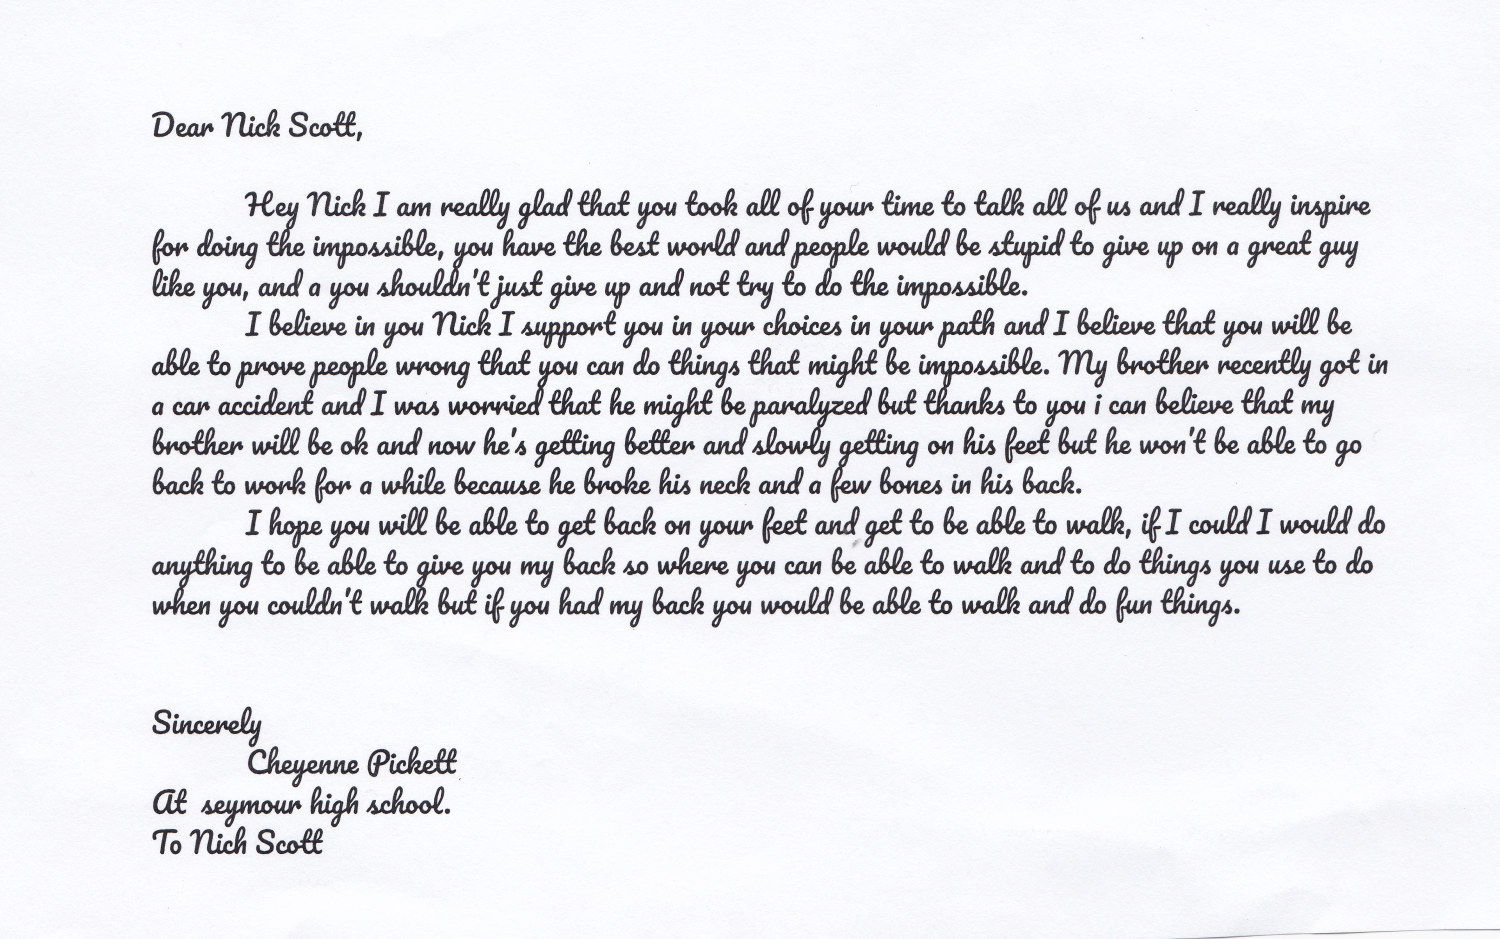 Dear Nick Scott,
Hey Nick I am really glad that you took all of your time to talk all of us and I really inspire
for doing the impossible, you have the best world and people would be stupid to give up on a great guy
like you, and a you shouldn't just give up and not try to do the impossible.
I believe in you Nick I support you in your choices in your path and I believe that you will be
able to prove people wrong that you can do things that might be impossible. My brother recently got in
a car accident and I was worried that he might be paralyzed but thanks to you i can believe that my
brother will be ok and now he's getting better and slowly getting on his feet but he won't be able to go
back to work for a while because he broke his neck and a few bones in his back.
I hope you will be able to get back on your feet and get to be able to walk, if I could I would do
anything to be able to give you my back so where you can be able to walk and to do things you use to do
when you couldn't walk but if you had my back you would be able to walk and do fun things.
Sincerely
Cheyenne Pickett
At seymour high school.
To Nich Scott